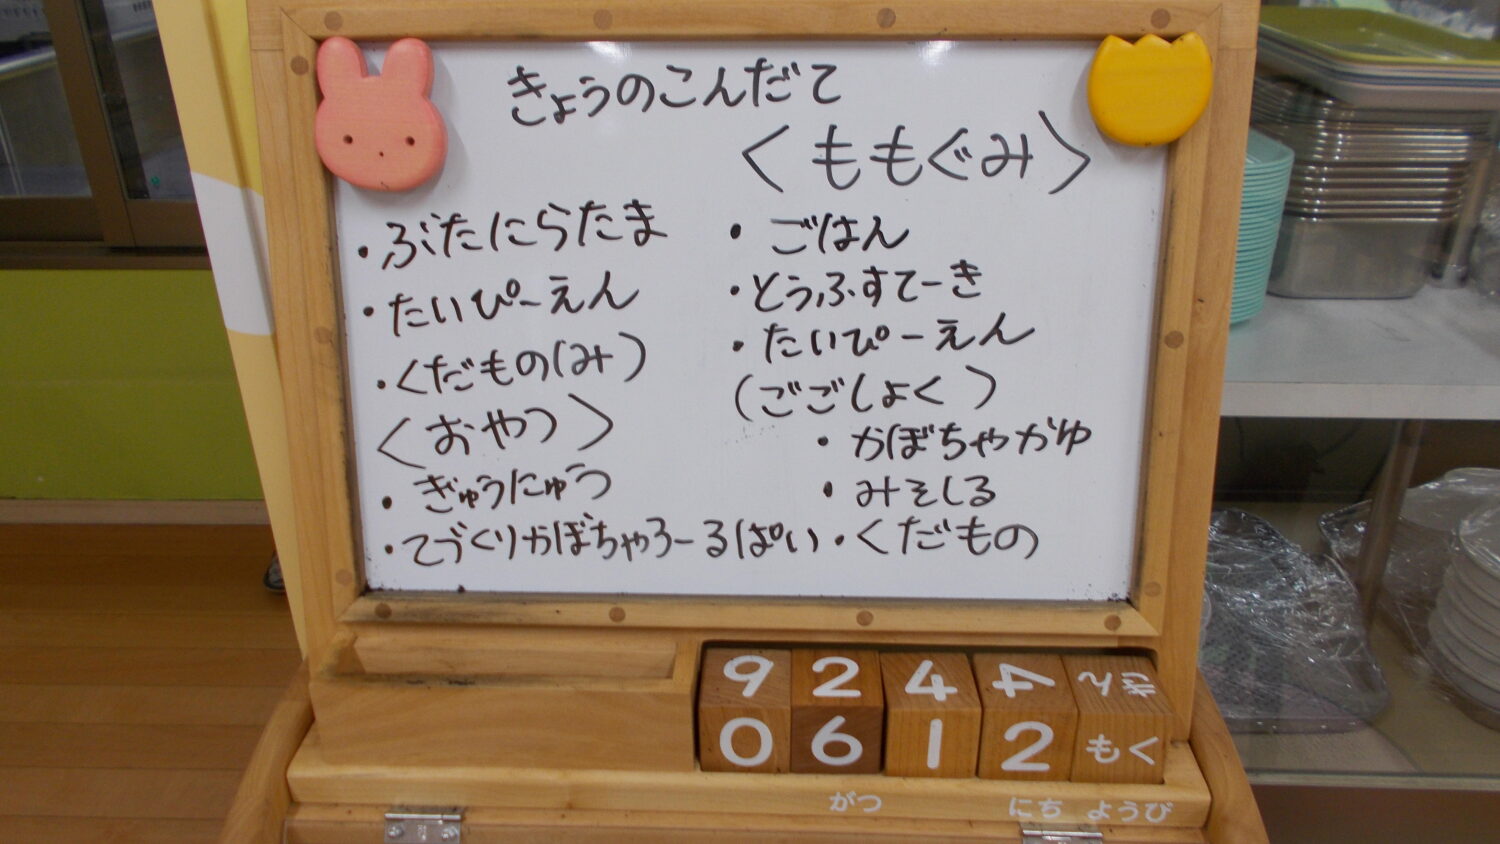 きょうのこんだて
〈ももぐみ〉
・ぶたにらたま
・たいぴーえん
・くだもの(み)
〈おやつ〉
・ぎゅうにゅう
・てづくりかぼちゃろーるぱい
・ごはん
・とうふすてーき
・たいぴーえん
(ごごしょく)
・かぼちゃがゆ
・みそしる
・くだもの
9 2 4 4
0 6 1 2 もく
がつ にち ようび